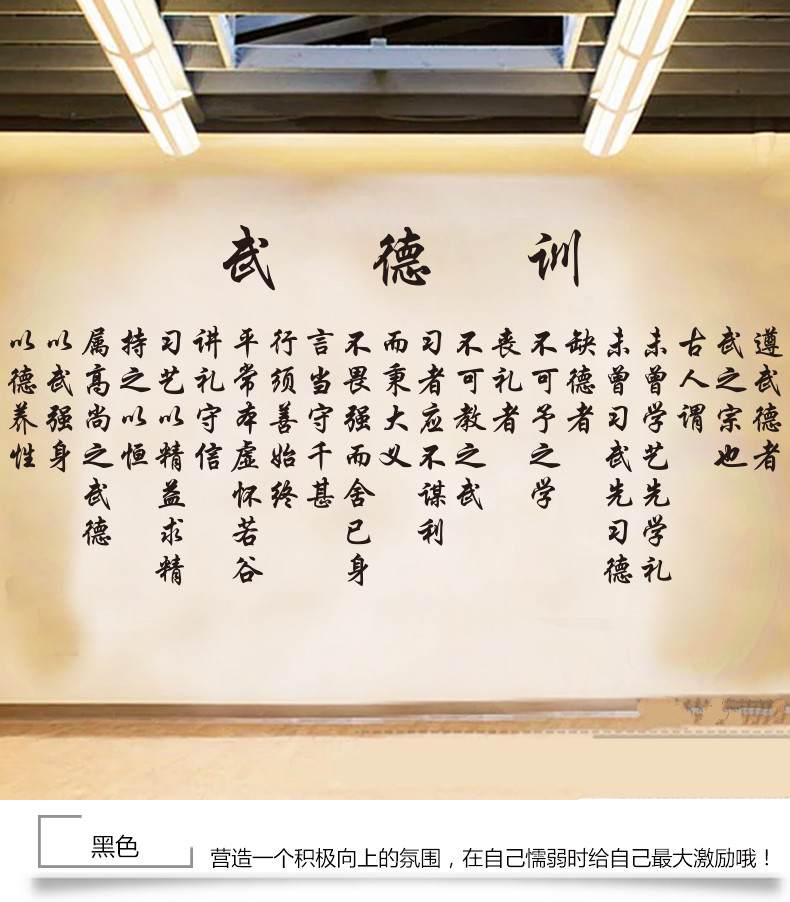 武德训
遵武德者
武之宗也
古人谓
未曾学艺先学礼
未曾习武先习德
缺德者
不可予之学
丧礼者
不可教之武
习者应不谋利
而秉大义
不畏强而舍已身
言当守千甚
行须善始终
平常本虚怀若谷
讲礼守信
习艺以精益求精
持之以恒
属高尚之武德
以武强身
以德养性
黑色
营造一个积极向上的氛围，在自己懦弱时给自己最大激励哦！